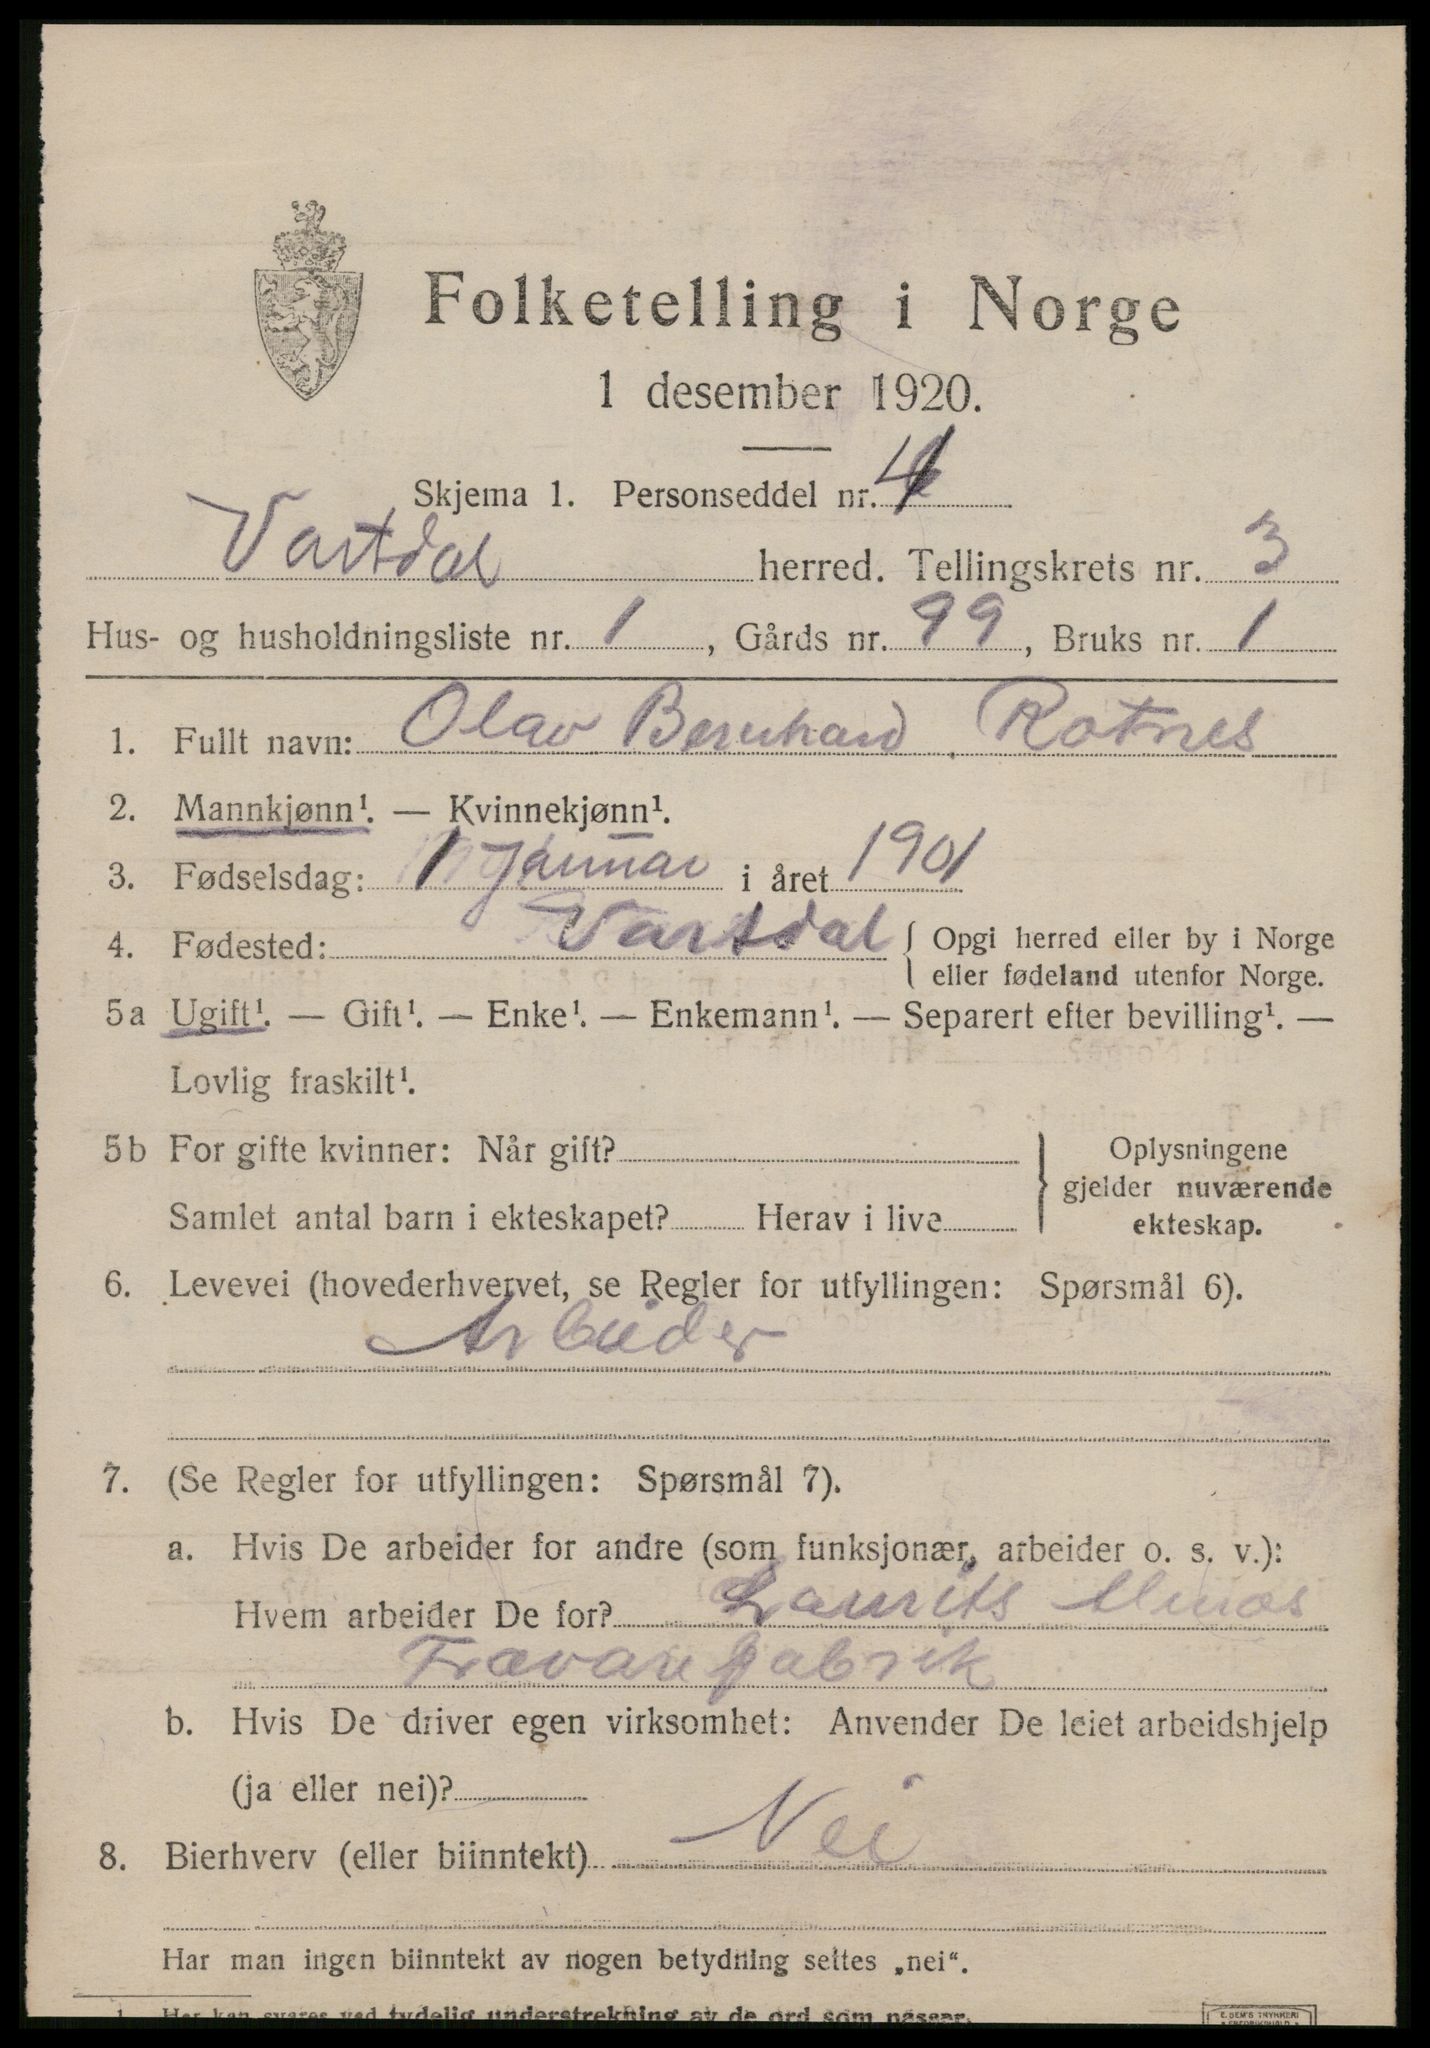 Folketelling i Norge
1 desember 1920.
Skjema 1. Personseddel nr. 4
Vartdal herred. Tellingskrets nr. 3
Hus- og husholdningsliste nr. 1, Gårds nr. 99, Bruks nr. 1
1. Fullt navn: Olav Bernhard Rotnes
2. Mannkjønn¹. — Kvinnekjønn¹.
3. Fødselsdag: 1 Januar i året 1901
4. Fødested: Vartdal { Opgi herred eller by i Norge
eller fødeland utenfor Norge.
5a Ugift¹. — Gift¹. — Enke¹. — Enkemann¹. — Separert efter bevilling¹. —
Lovlig fraskilt¹.
5b For gifte kvinner: Når gift? } Oplysningene
gjelder nuværende
Samlet antal barn i ekteskapet? Herav i live ekteskap.
6. Levevei (hovederhvervet, se Regler for utfyllingen: Spørsmål 6).
Arbeider
7. (Se Regler for utfyllingen: Spørsmål 7).
a. Hvis De arbeider for andre (som funksjonær, arbeider o. s. v.):
Hvem arbeider De for? Laurits
Trævarefabrik
b. Hvis De driver egen virksomhet: Anvender De leiet arbeidshjelp
(ja eller nei)?
8. Bierhverv (eller biinntekt) Nei
Har man ingen biinntekt av nogen betydning settes „nei“.
1 Her kan svares ved tydelig understrekning av de ord som passer.
E. SEM'S TRYKKERI
FREDRIKSHALD